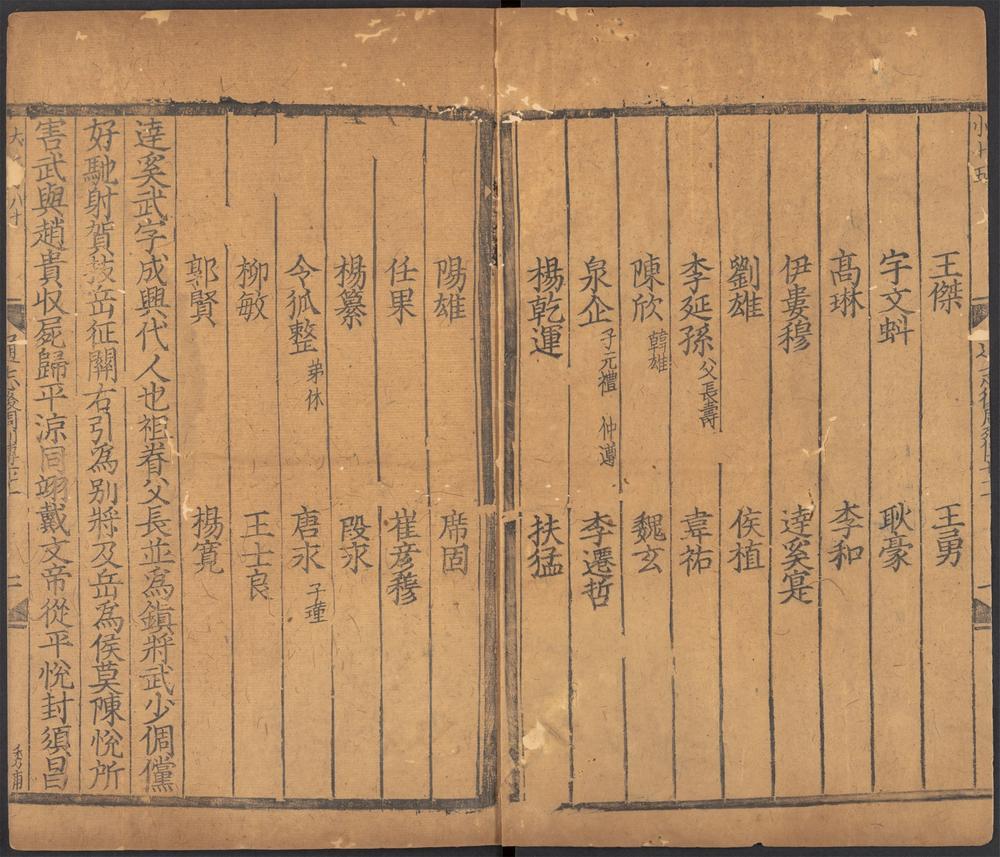 王傑 王勇
宇文虯 耿豪
髙琳 李和
伊婁穆 達奚寔
劉雄 侯植
李延孫 父長壽 韋祐
陳欣 韓雄 魏玄
泉企 子元禮 仲遵 李遷哲
楊乾運 扶猛
陽雄 席固
任果 崔彦穆
楊纂 段永
令狐整 弟休 唐永 子瑾
柳敏 王士良
郭賢 楊寛
達奚武字成興代人也祖眷父長並爲鎮將武少倜儻
好馳射賀拔岳征關右引爲别將及岳爲侯莫陳悅所
害武與趙貴収屍歸平涼同翊戴文帝從平悅封須昌
秀甫